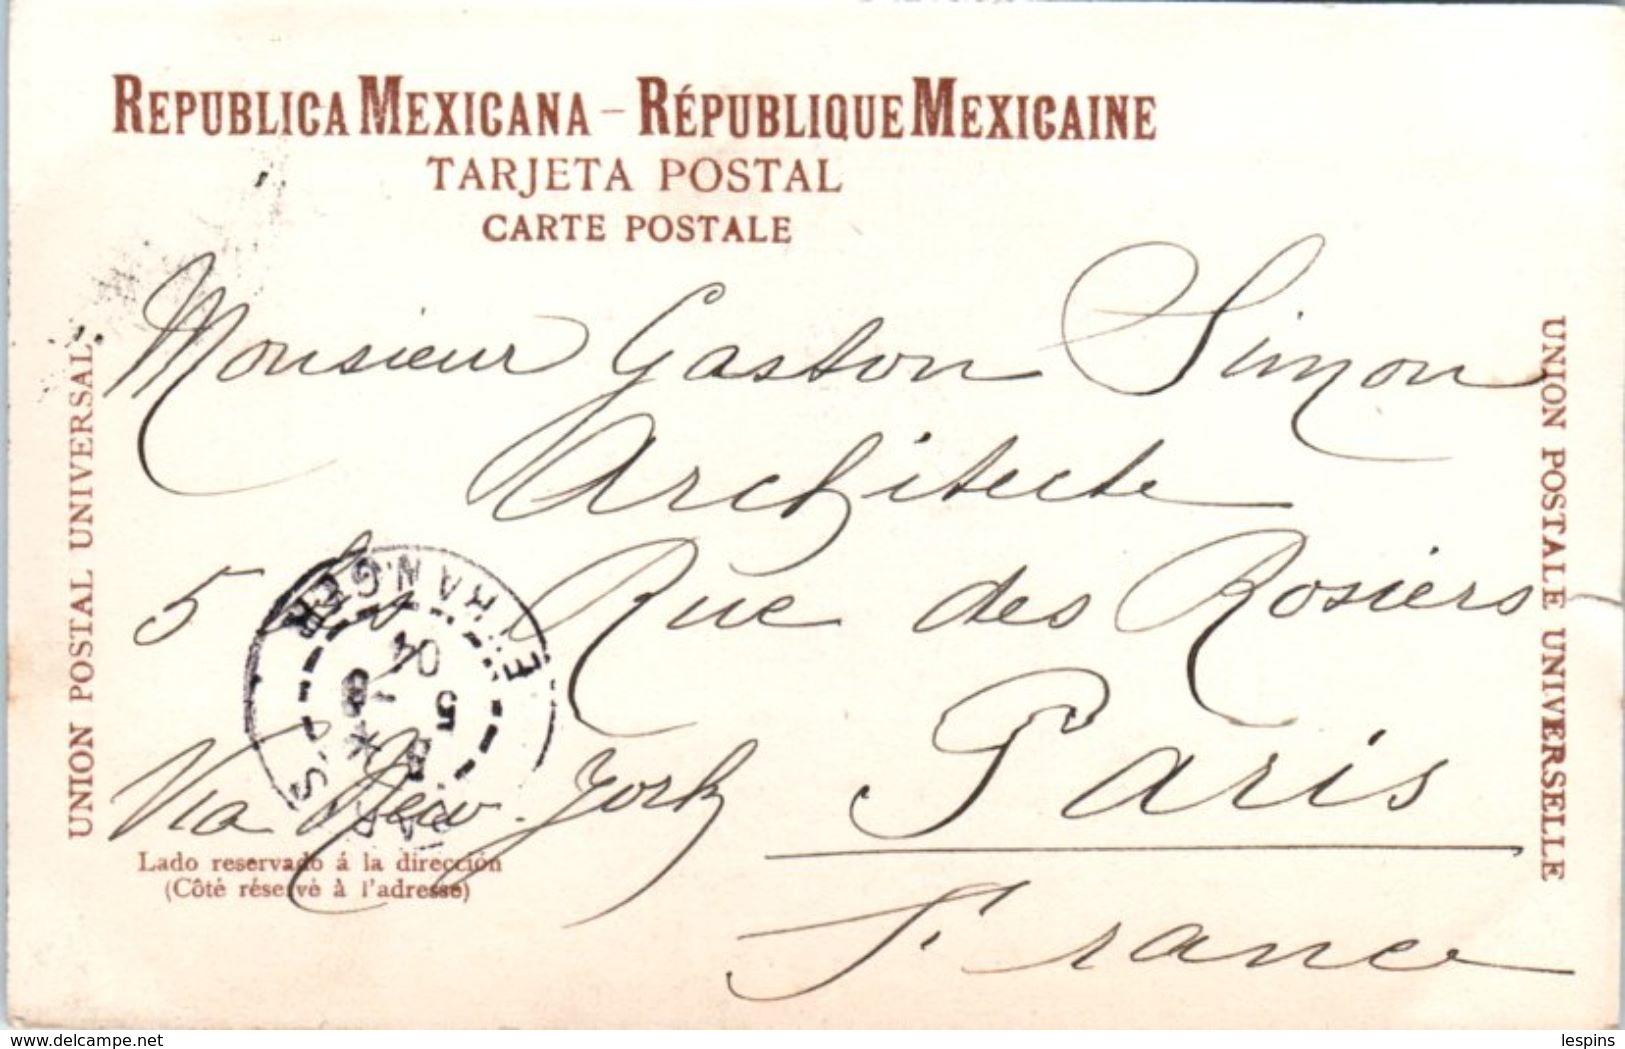 REPUBLICA MEXICANA – RÉPUBLIQUE MEXICAINE
TARJETA POSTAL
CARTE POSTALE
UNION POSTAL UNIVERSAL
UNION POSTALE UNIVERSELLE
Monsieur Gaston Simon
Architecte
5 bis Rue des Rosiers
Paris
Via New-York
France
PARIS ETRANGER
5
04
Lado reservado á la dirección
(Côté réservé à l'adresse)
delcampe.net
lespins